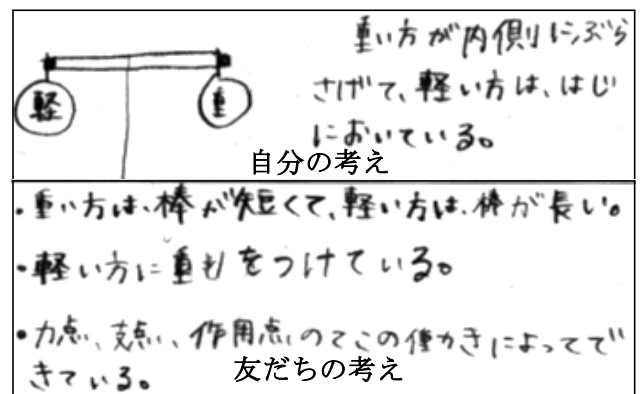 重い方が内側にぶら
さげて、軽い方は、はじ
においている。
軽
重
自分の考え
・重い方は、棒が短くて、軽い方は、棒が長い。
・軽い方に重りをつけている。
・力点、支点、作用点のてこの働きによってで
きている。
友だちの考え